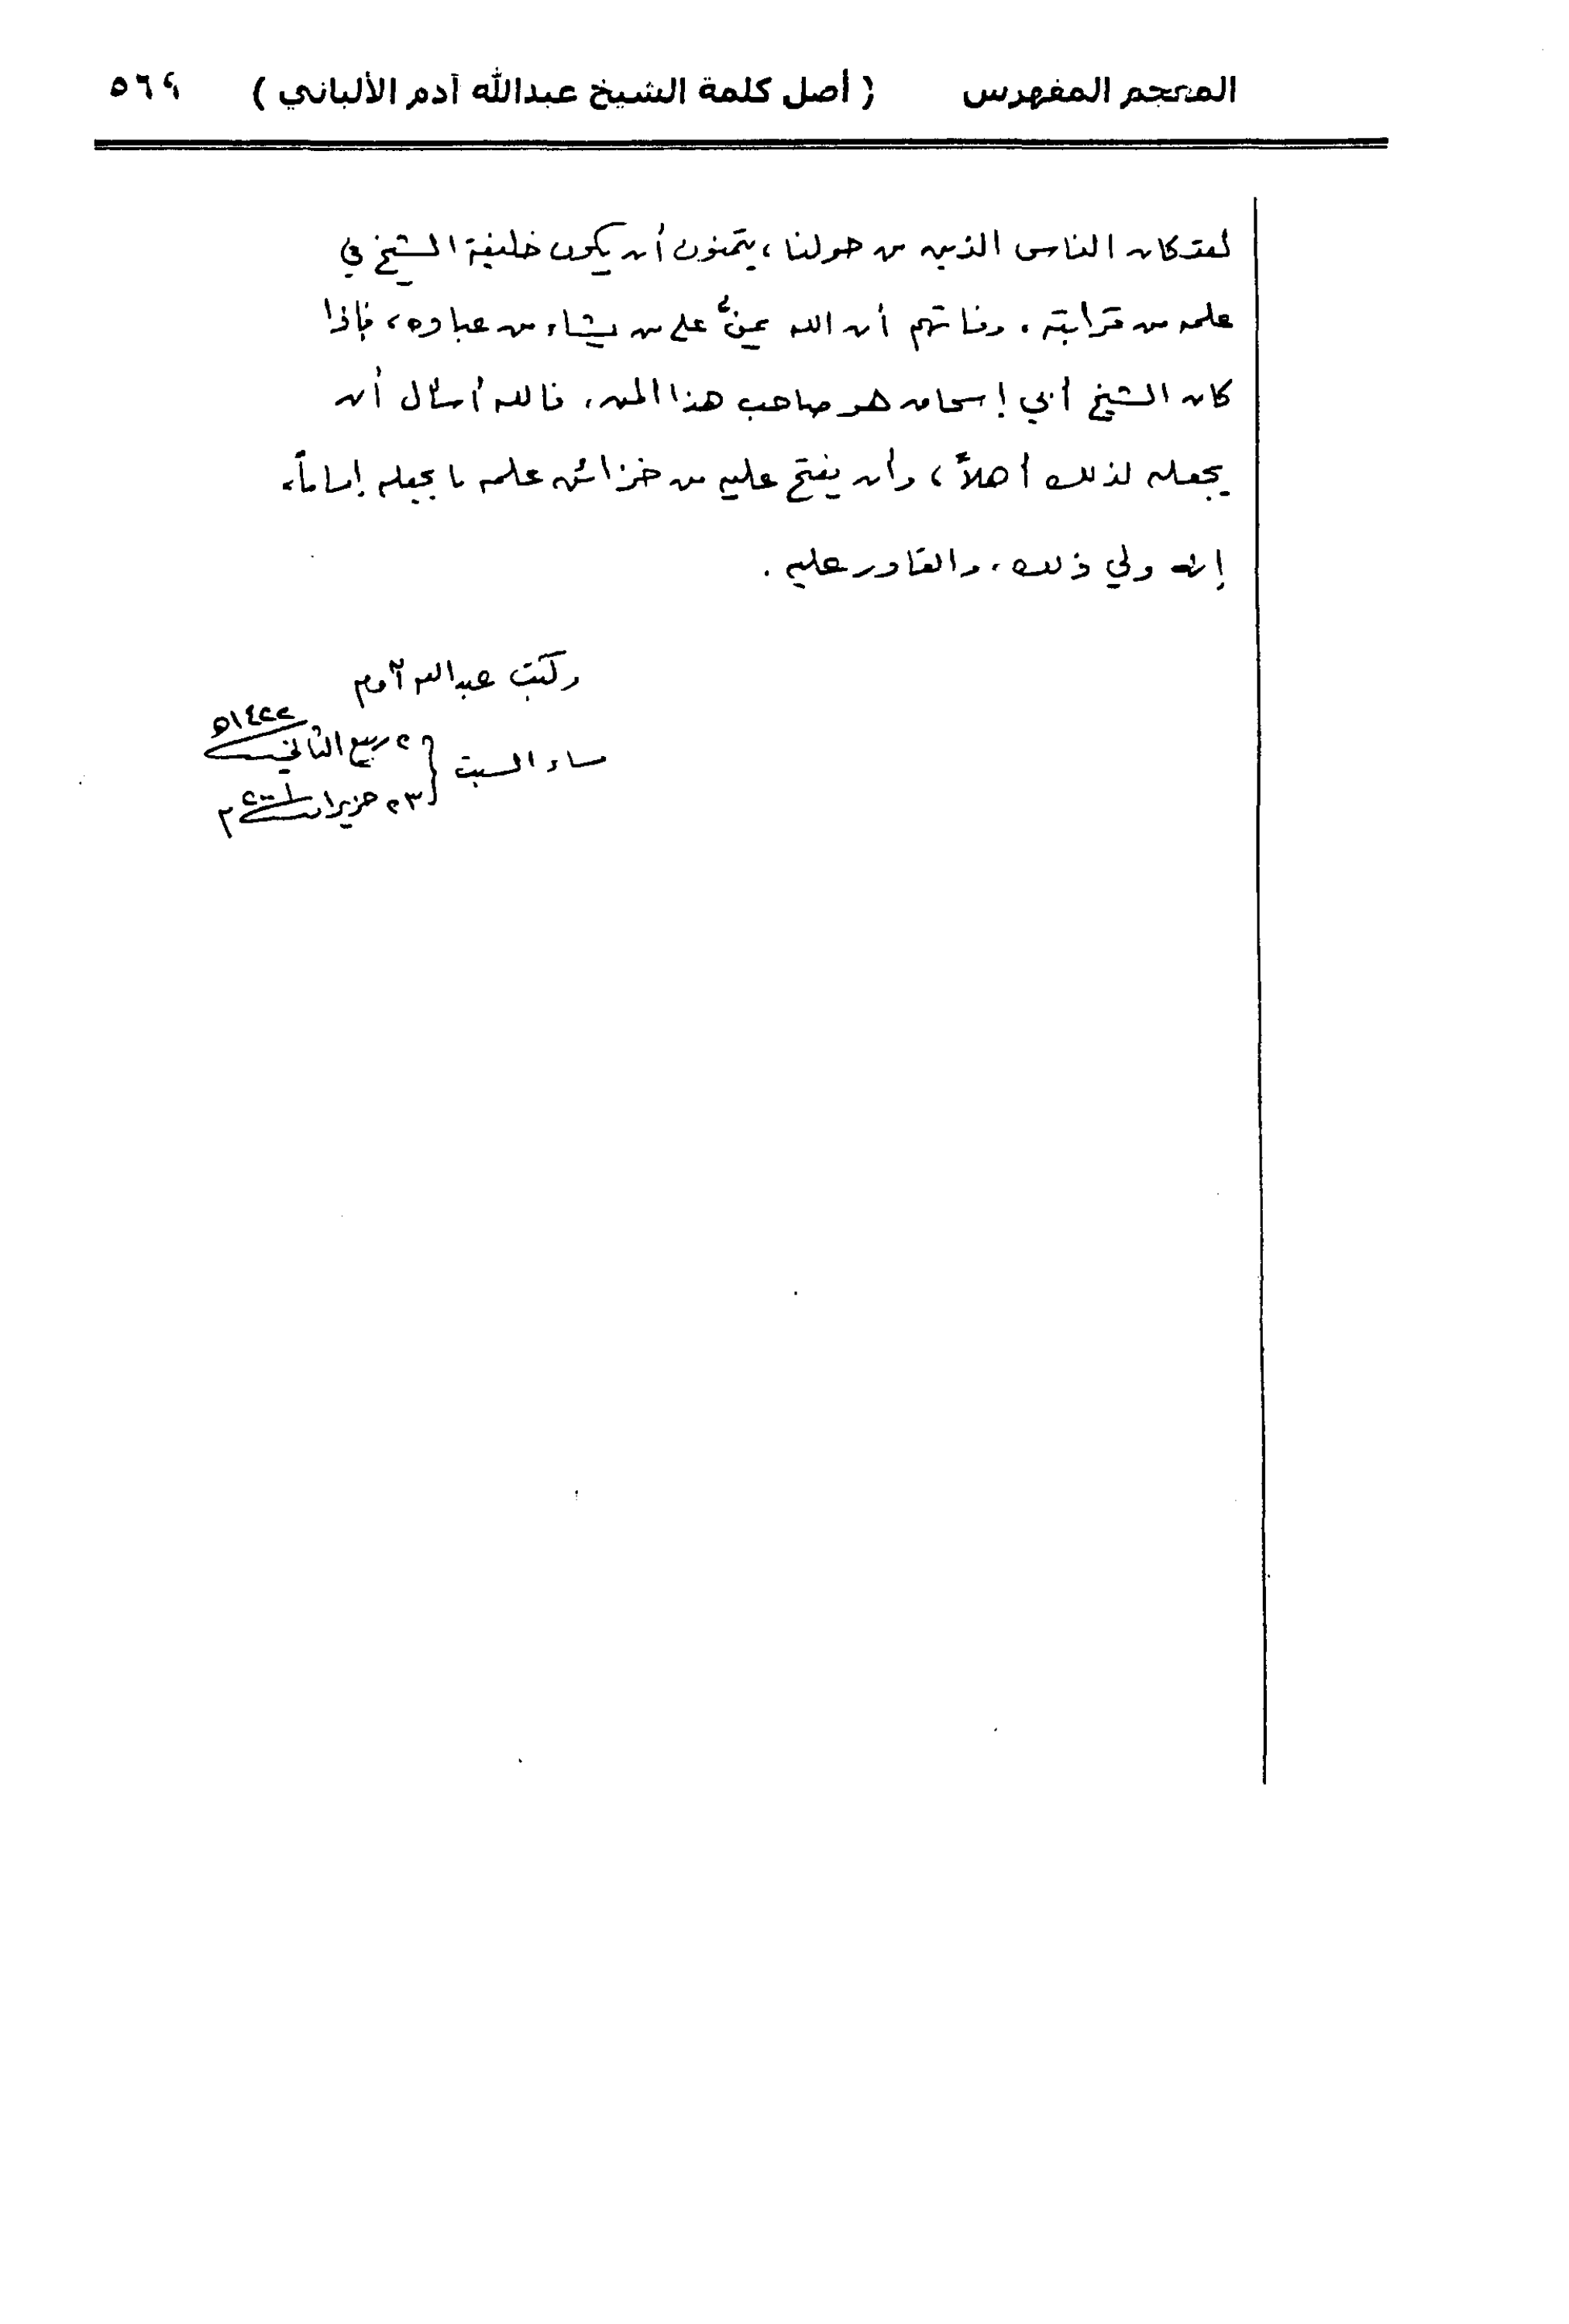 المعجم المفهرس ( أصل كلمة الشيخ عبدالله آدم الألباني ) ٥٦٩
لقد كان الناس الذين من حولنا، يتمنون أن يكون خليفة الشيخ في
علمه من قرابته، وفاتهم أن الله يمنُّ على من يشاء من عباده، فإذا
كان الشيخ أبي إسحاق هو صاحب هذا المن، فالله أسأل أن
يجعله لذلك أهلاً، وأن يفتح عليه من خزائن علمه ما يجعله إماماً،
إنه ولي ذلك، والقادر عليه.
وكتب عبدالله آدم
مساء السبت { ٢ ربيع الثاني ١٤٢٢هـ
٢٣ حزيران ٢٠٠١م